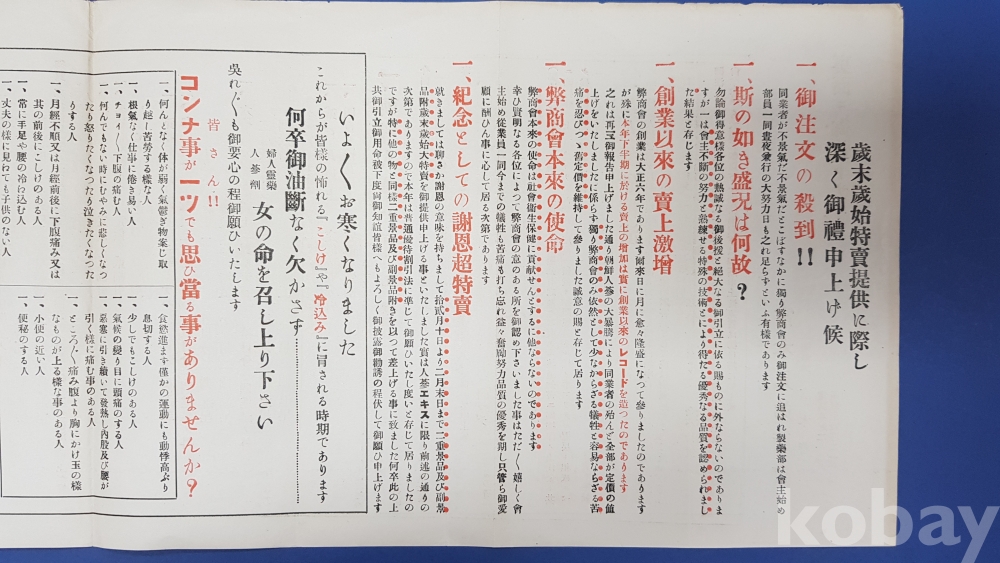 歲末歲始特賣提供に際し
深く御禮申上げ候
一、御注文の殺到!!
同業者が不景氣だ不景氣だとこぼすなかに獨り弊商會のみ御注文に追はれ製藥部は會主始め
部員一同晝夜兼行の大努力且も之れ足らずといふ有樣であります
一、斯の如き盛況は何故?
勿論御得意樣各位の熱誠なる御後援と絕大なる御引立に依る賜ものに外ならないのでありま
すが一は會主不斷の努力と熟練せる特殊の技術とにより得たる優秀なる品質を認められまし
た結果と存じます
一、創業以來の賣上激增
弊商會の創業は大正六年であります爾來日に月に愈々隆盛になつて參りましたのであります
が殊に本年下半期に於ける賣上の增加は實に創業以來のレコードを造つたのであります
之れは再三御報告申上げました通り朝鮮人參の大暴騰により同業者の殆んど全部が定價の値
上げをいたしましたに係らず獨り弊商會のみ依然として少なからざる犧牲と容易ならざる苦
痛を忍びつゝ舊定價を維持して參りました誠意の賜と存じて居ります
一、弊商會本來の使命
弊商會本來の使命は社會衛生保健に貢献せんとするに他ならないのであります
幸ひ賢明なる各位によつて弊商會の意のある所を御認め下さいました事はたゞ〱嬉しく會
主始め從業員一同今までの犧牲も苦痛も打ち忘れ益々奮勵努力品質の優秀を期し只管ら御愛
顧に酬ひん事に心して居る次第であります
一、紀念としての謝恩超特賣
就きましては聊さか謝恩の意味を持ちまして拾貳月十日より二月末日まで二重景品及び副景
品附歲末歲始大特賣を御提供申上げる事といたしました實は人參エキスに限り前述の通りの
次第でありますので本年は普通優待割引法に準じて御願ひいたし度いと存じて居りましたの
ですが特に他の物と同樣二重景品及び副景品附きを以つて差上げる事に致ました何卒此の上
共御引立御用命被下度尚御知誼皆樣へもよろしく御披露御勸誘の程伏して御願ひ申上げます
いよ〱お寒くなりました
これからが皆樣の怖れる『こしけ』や『冷込み』に冐される時期であります
何卒御油斷なく欠かさず
婦人靈藥
人參劑
女の命を召し上り下さい
吳れ〲も御要心の程御願ひいたします
皆さん!!
コンナ事が一ツでも思ひ當る事がありませんか?
一、何んとなく体が弱く氣鬱ぎ物案じ取
り越し苦勞する樣な人
一、根氣なく仕事に倦き易い人
一、チヨイ〱下腹の痛む人
一、何んでもない時にむやみに悲しくなつ
たり怒りたくなつたり泣きたくなつた
りする人
一、月經不順又は月經前後に下腹痛み又は
其の前後にこしけのある人
一、常に手足や腰の冷わ込む人
一、丈夫の樣に見わても子供のない人
一、食慾進まず僅かの運動にも動悸高ぶり
息切する人
一、少しでもこしけのある人
一、氣候の變り目に頭痛のする人
一、惡寒に引き續いて發熱し內股及び腰が
引く樣に痛む事のある人
一、ところ〲痛み腹より胸にかけ玉の樣
なものが上る樣な事のある人
一、小便の近い人
一、便秘のする人
kobay